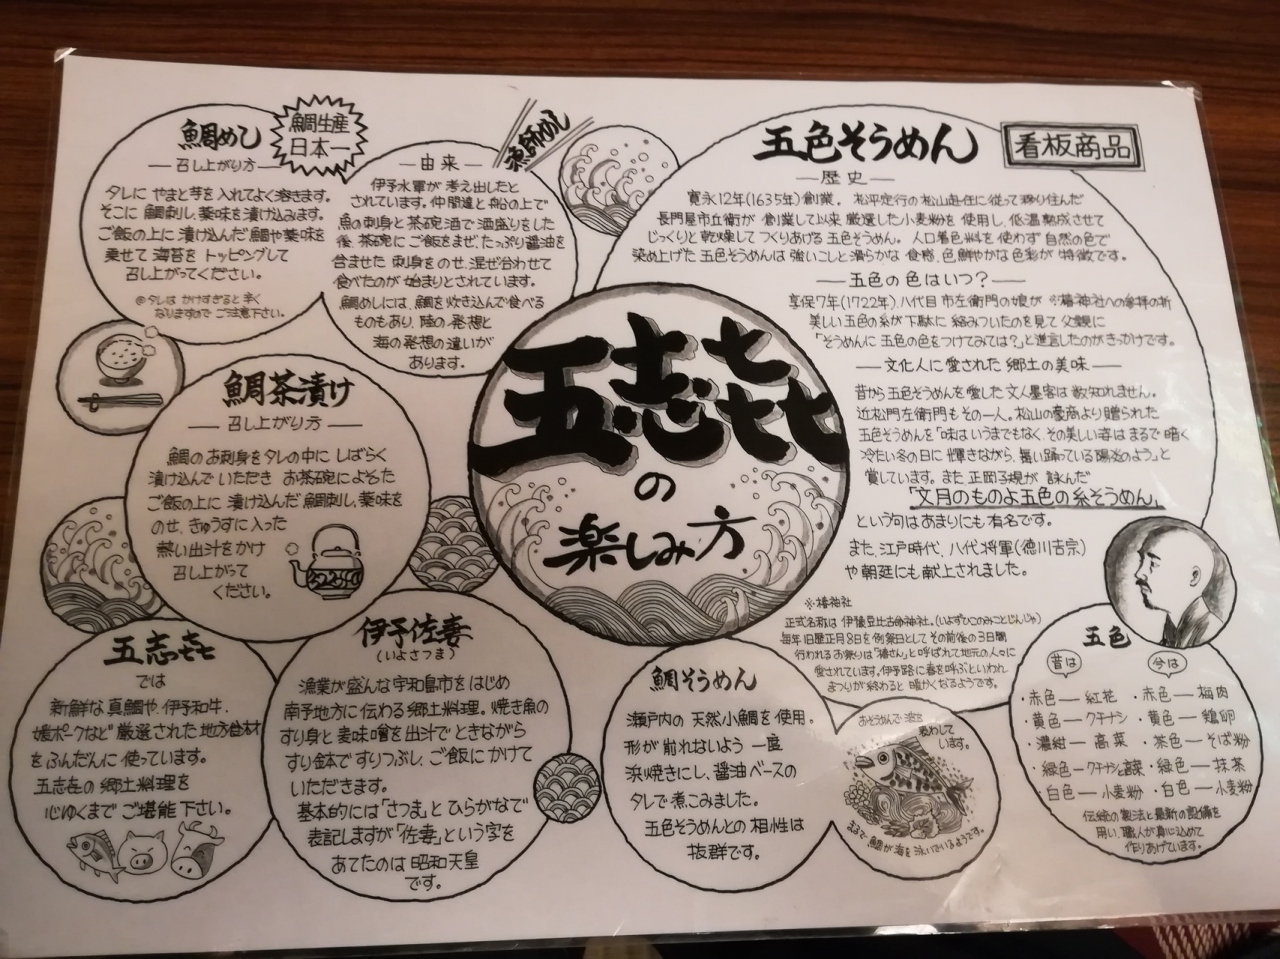 鯛めし
鯛生産
日本一
―召し上がり方―
タレに やまと芋を入れてよく溶きます。
そこに 鯛刺し、薬味を漬け込みます。
ご飯の上に 漬け込んだ鯛や薬味を
乗せて 海苔を トッピングして
召し上がってください。
◎タレは かけすぎると辛く
なりますので ご注意下さい。
漁師めし
―由来―
伊予水軍が 考え出したと
されています。仲間達と船の上で
魚の刺身と茶碗酒で酒盛りをした
後、茶碗に ご飯をまぜ、たっぷり醤油を
含ませた 刺身をのせ、混ぜ合わせて
食べたのが 始まりとされています。
鯛めしには、鯛を炊き込んで食べる
ものもあり、陸の発想と
海の発想の違いが
あります。
五色そうめん
看板商品
―歴史―
寛永12年(1635年)創業。 松平定行の松山赴任に従って移り住んだ
長門屋市兵衛が 創業して以来 厳選した小麦粉を 使用し、低温熟成させて
じっくりと乾燥して つくりあげる 五色そうめん。 人口着色料を使わず 自然の色で
染め上げた 五色そうめんは 強いこしと滑らかな 食感、色鮮やかな色彩が 特徴です。
―五色の色はいつ?―
享保7年(1722年)、八代目 市左衛門の娘が ※椿神社への参拝の折
美しい五色の糸が 下駄に 絡みついたのを見て 父親に
「そうめんに 五色の色をつけてみては?」と進言したのがきっかけです。
―文化人に愛された 郷土の美味―
昔から 五色そうめんを 愛した 文人墨客は 数知れません。
近松門左衛門もその一人。松山の豪商より 贈られた
五色そうめんを「味はいうまでもなく、その美しい姿は まるで 暗く
冷たい冬の日に 輝きながら、舞い踊っている 陽炎のよう」と
賞しています。また 正岡子規が 詠んだ
「文月のものよ五色の糸そうめん」
という句はあまりにも 有名です。
また、江戸時代、八代将軍(徳川吉宗)
や朝廷にも献上されました。
※椿神社
正式名称は 伊豫豆比古命神社。(いよずひこのみことじんじゃ)
毎年 旧暦正月8日を 例祭日として その前後の3日間
行われる お祭りは「椿さん」と呼ばれて地元の人々に
愛されています。伊予路に春を呼ぶといわれ
まつりが終わると 暖かくなるようです。
五志㐂
の
楽しみ方
鯛茶漬け
―召し上がり方―
鯛のお刺身を タレの中に しばらく
漬け込んでいただき お茶碗によそった
ご飯の上に 漬け込んだ 鯛刺し、薬味を
のせ、きゅうすに入った
熱い出汁をかけ
召し上がって
ください。
五志㐂
では
新鮮な真鯛や、伊予和牛、
媛ポークなど 厳選された 地方食材
をふんだんに 使っています。
五志㐂の 郷土料理を
心ゆくまで ご堪能 下さい。
伊予佐妻
(いよさつま)
漁業が盛んな 宇和島市を はじめ
南予地方に 伝わる 郷土料理。焼き魚の
すり身と 麦味噌を 出汁で ときながら
すり鉢で すりつぶし、ご飯に かけて
いただきます。
基本的には「さつま」と ひらがなで
表記しますが「佐妻」という字を
あてたのは 昭和天皇
です。
鯛そうめん
瀬戸内の 天然小鯛を 使用。
形が 崩れないよう 一度
浜焼きにし、醤油ベースの
タレで 煮こみました。
五色そうめんとの 相性は
抜群です。
おそうめんで 波を
表わして
います。
まるで 鯛が 海を 泳いでいるようです。
五色
昔は
・赤色―紅花
・黄色―クチナシ
・濃紺―高菜
・緑色―クチナシと高菜
・白色―小麦粉
今は
・赤色―梅肉
・黄色―鶏卵
・茶色―そば粉
・緑色―抹茶
・白色―小麦粉
伝統の 製法と 最新の設備を
用い、職人が真心込めて
作りあげています。